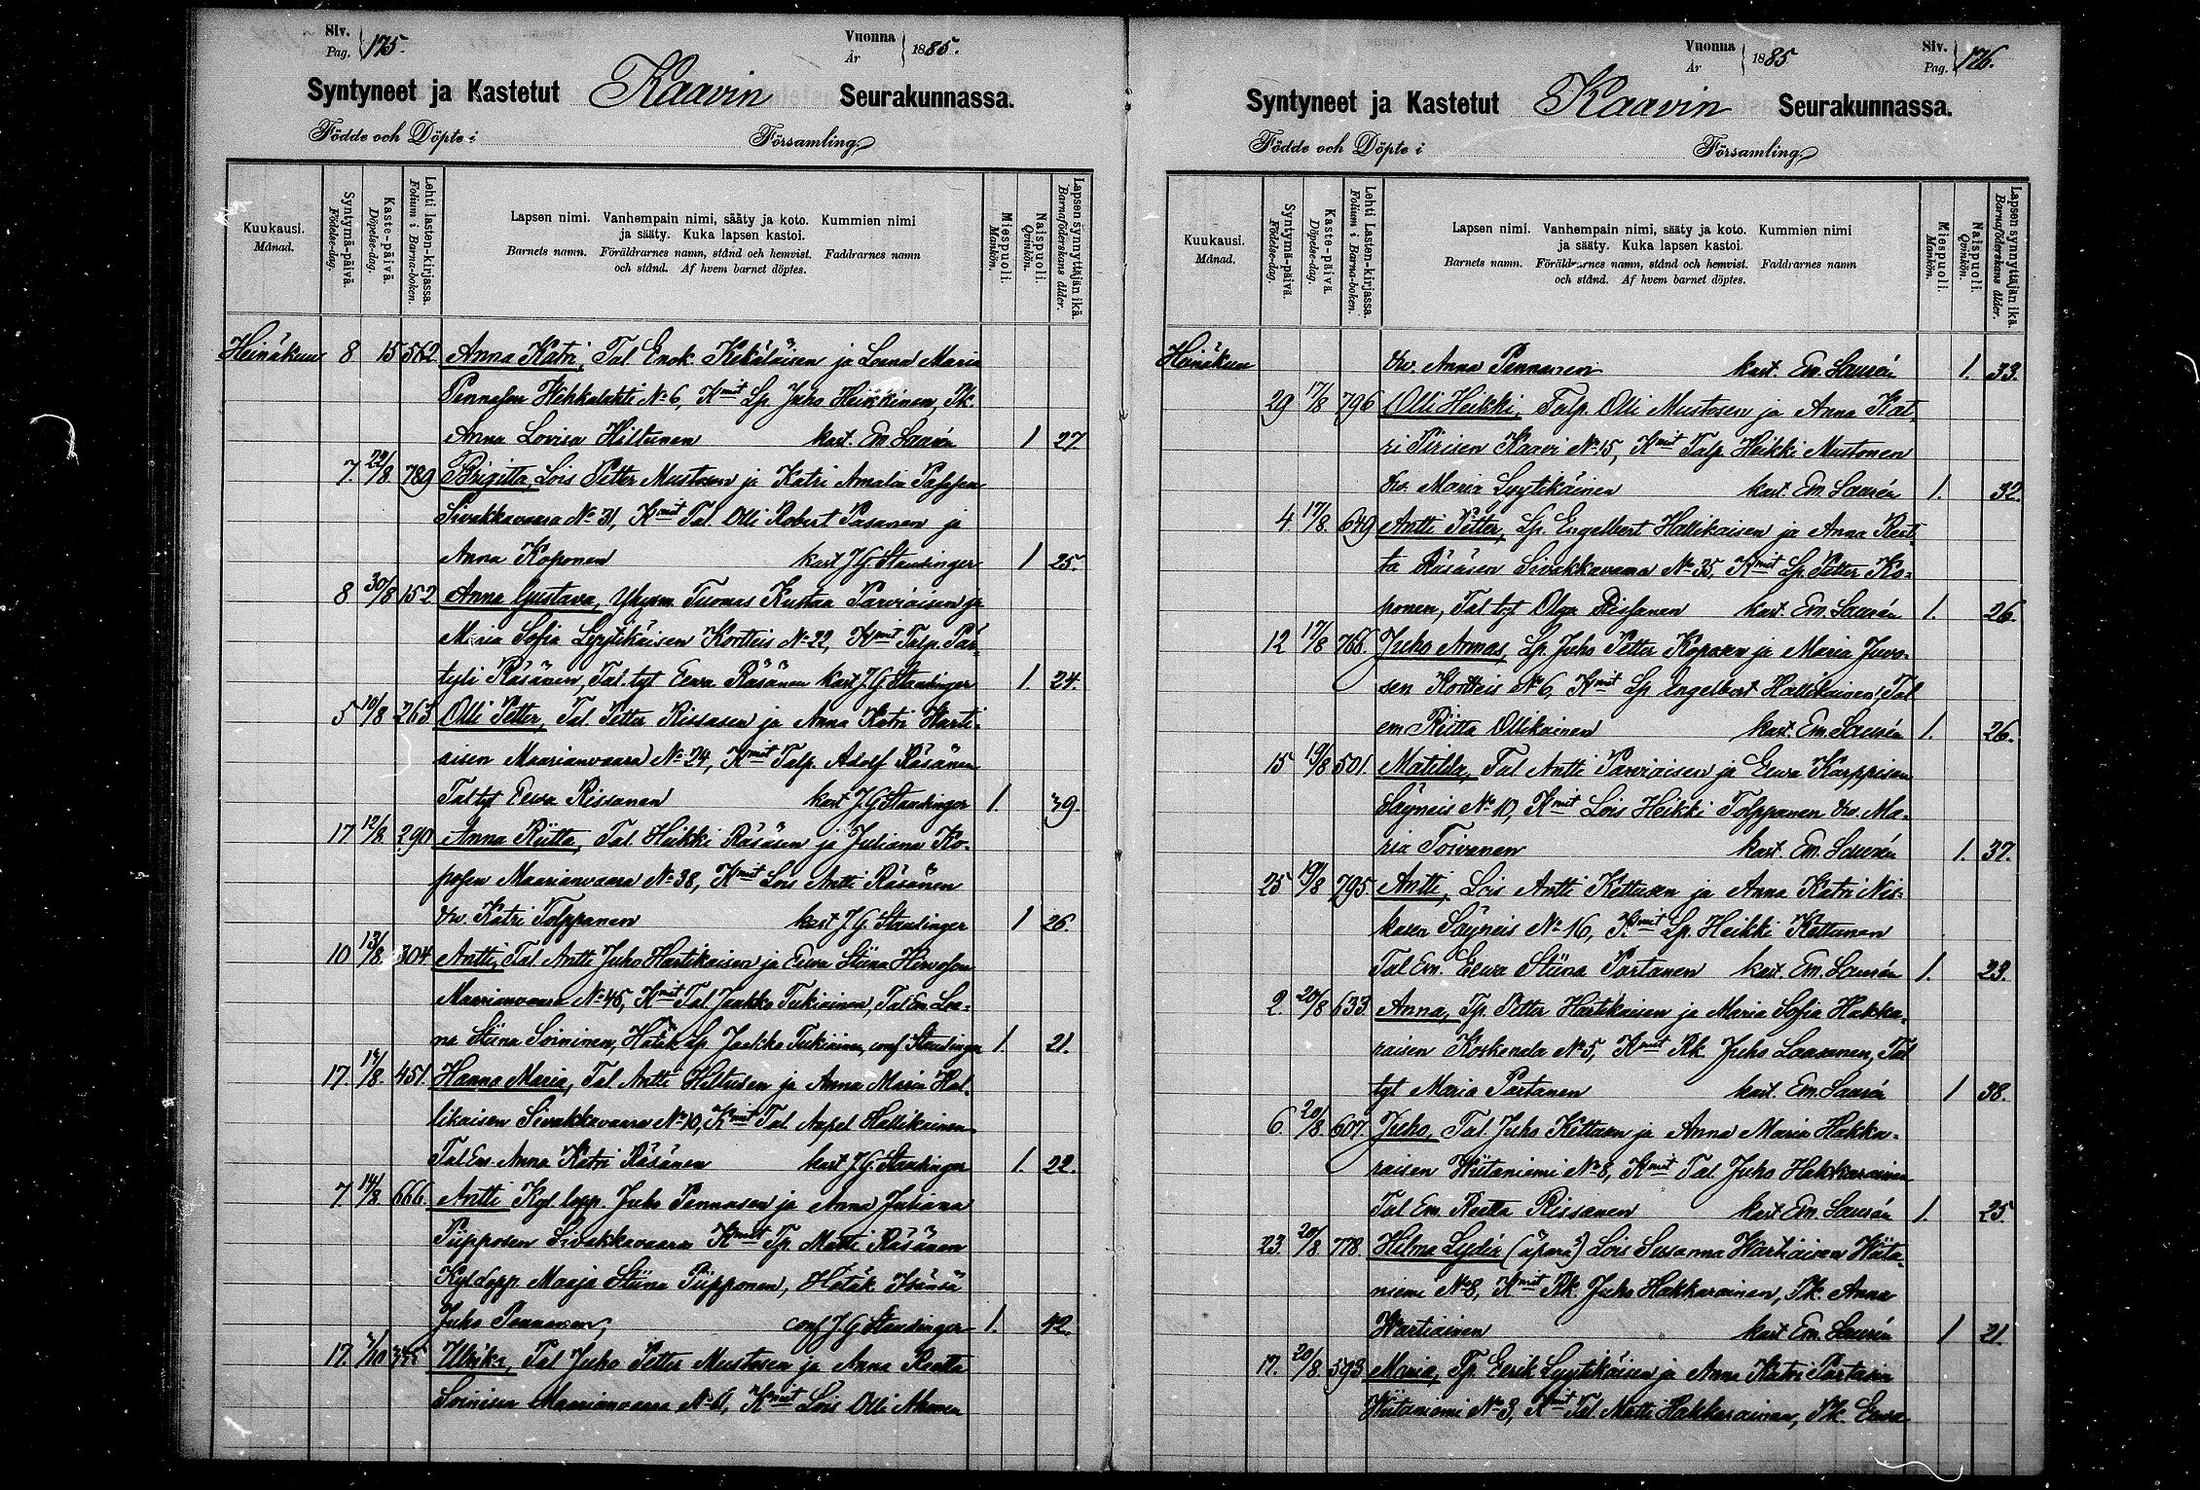 Siv. Pag. 175.
Vuonna År 1885.
Syntyneet ja Kastetut Kaavin Seurakunnassa.
Födde och Döpte i Församling.
Kuukausi. Månad.
Syntymä-päivä. Födelse-dag.
Kaste-päivä. Döpelse-dag.
Lehti lasten-kirjassa. Folium i Barna-boken.
Lapsen nimi. Vanhempain nimi, sääty ja koto. Kummien nimi
ja sääty. Kuka lapsen kastoi.
Barnets namn. Föräldrarnes namn, stånd och hemvist. Faddrarnes namn
och stånd. Af hvem barnet döptes.
Miespuoli. Mankön.
Naispuoli. Qvinkön.
Lapsen synnyttäjän ikä. Barnaföderskans ålder.
Heinäkuu 8 15 562 Anna Katri, Tal Enok Kekäläisen ja Leena Maria
Pennasen Wehkalahti No 6, Kmit Lp. Juho Heikkinen, Pk.
Anna Lovisa Hiltunen kast. Em. Laurén 1 27
7. 29/8 789 Brigitta, Lois Petter Mustosen ja Katri Amalia Pasasen
Sivakkavaara No 31, Kmit Tal. Olli Robert Pasanen ja
Anna Koponen kast J.G. Staudinger 1 25.
8 30/8 152 Anna Gustava, Tuomas Kustaa Parviaisen ja
Maria Sofia Lyytikäisen Kortteis No 22, Kmit Talp. Pär-
tyli Räsänen, Tal. tyt Eeva Räsänen kast J.G. Staudinger 1. 24.
5 10/8 263 Olli Petter, Tal. Petter Rissasen ja Anna Katri Harti-
aisen Maarianvaara No 24, Kmit Talp. Adolf Räsänen
Tal tyt Eeva Rissanen kast J.G. Staudinger 1. 39.
17 12/8 290 Anna Riitta, Tal. Heikki Räsäsen ja Juliana Ko-
posen Maarianvaara No 38, Kmit Lois Antti Räsänen
Katri Tolppanen kast J.G. Staudinger 1 26.
10 13/8 304 Antti, Tal. Antti Juho Hartikaisen ja Eeva Stiina Hirvosen
Maarianvaara No 45, Kmit Tal Jaakko Tukiainen, Tal Em. Lee-
na Stiina Soininen, Hätäk Lp Jaakko Tukiainen, conf Staudinger 1. 21.
17. /8. 451 Hanna Maria, Tal Antti Hiltusen ja Anna Maria Hal-
likaisen Sivakkavaara No 10, Kmit Tal. Aapel Hallikainen
Tal Em. Anna Katri Räsänen kast J.G. Staudinger 1. 22.
7 14/8 666 Antti Kyl. lopp. Juho Pennasen ja Anna Juliana
Piipposen Sivakkavaara Kmit Tp. Matti Räsänen
Kyl lopp. Maaja Stiina Piipponen, Hätäk Isäntä
Juho Pennanen, conf J.G. Staudinger 1. 42.
17. /10 Ulrika, Tal Juho Petter Mustosen ja Anna Reetta
Soinisen Maarianvaara Kmit Lois Olli
Vuonna År 1885
Siv. Pag. 176.
Syntyneet ja Kastetut Kaavin Seurakunnassa.
Födde och Döpte i Församling.
Kuukausi. Månad.
Syntymä-päivä. Födelse-dag.
Kaste-päivä. Döpelse-dag.
Lehti Lasten-kirjassa. Folium i Barna-boken.
Lapsen nimi. Vanhempain nimi, sääty ja koto. Kummien nimi
ja sääty. Kuka lapsen kastoi.
Barnets namn. Föräldrarnes namn, stånd och hemvist. Faddrarnes namn
och stånd. Af hvem barnet döptes.
Miespuoli. Mankön.
Naispuoli. Qvinkön.
Lapsen synnyttäjän ikä. Barnaföderskans ålder.
Heinäkuu Anna Pennanen kast. Em. Laurén 1. 33.
29 17/8 796 Olli Heikki, Talp. Olli Mustosen ja Anna Kat-
ri Pirisen Kaavi No 15, Kmit Talp. Heikki Mustonen
Maria Lyytikäinen kast. Em. Laurén 1. 32.
4. 17/8. 649 Antti Petter, Lp. Engelbert Hallikaisen ja Anna Reet-
ta Räsäsen Sivakkavaara No 35, Kmit Lp. Petter Ko-
ponen, Tal tyt Olga Rissanen kast. Em. Laurén 1. 26.
12 17/8 768. Juho Armas, Lp. Juho Petter Koposen ja Maria Juvo-
sen Kortteis No 6, Kmit Lp Engelbert Hallikainen, Tal
em Riitta Ollikainen kast. Em. Laurén 1. 26.
15 19/8 501. Matilda, Tal Antti Parviaisen ja Eeva Karppisen
Säyneis No 10, Kmit Lois Heikki Tolppanen Ma-
ria Toivanen kast. Em. Laurén 1. 37.
25 19/8 795 Antti, Lois Antti Kettusen ja Anna Katri Nis-
kasen Säyneis No 16, Kmit Lp. Heikki Kettunen
Tal Em. Eeva Stiina Partanen kast. Em. Laurén 1. 23.
2. 20/8 633 Anna, Tp. Petter Hartikaisen ja Maria Sofia Hakka-
raisen Koskenala No 5, Kmit Rk. Juho Laasanen, Tal
tyt Maria Partanen kast. Em. Laurén 1 38.
6. 20/8 607. Juho, Tal. Juho Kettusen ja Anna Maria Hakka-
raisen Wiitaniemi No 8, Kmit Tal. Juho Hakkarainen
Tal Em. Reetta Rissanen kast Em. Laurén 1. 25.
23. 20/8 778. Hilma Lydia (äpärä) Lois Susanna Wartiaisen Wiita-
niemi No 8, Kmit Rk. Juho Hakkarainen, Pk. Anna
Wartiainen kast Em. Laurén 1 21.
17. 20/8. 593 Maria, Tp. Eerik Lyytikäisen ja Anna Katri Partasen
Wiitaniemi No 3, Kmit Tal Matti Hakkarainen, Pk. Eeva